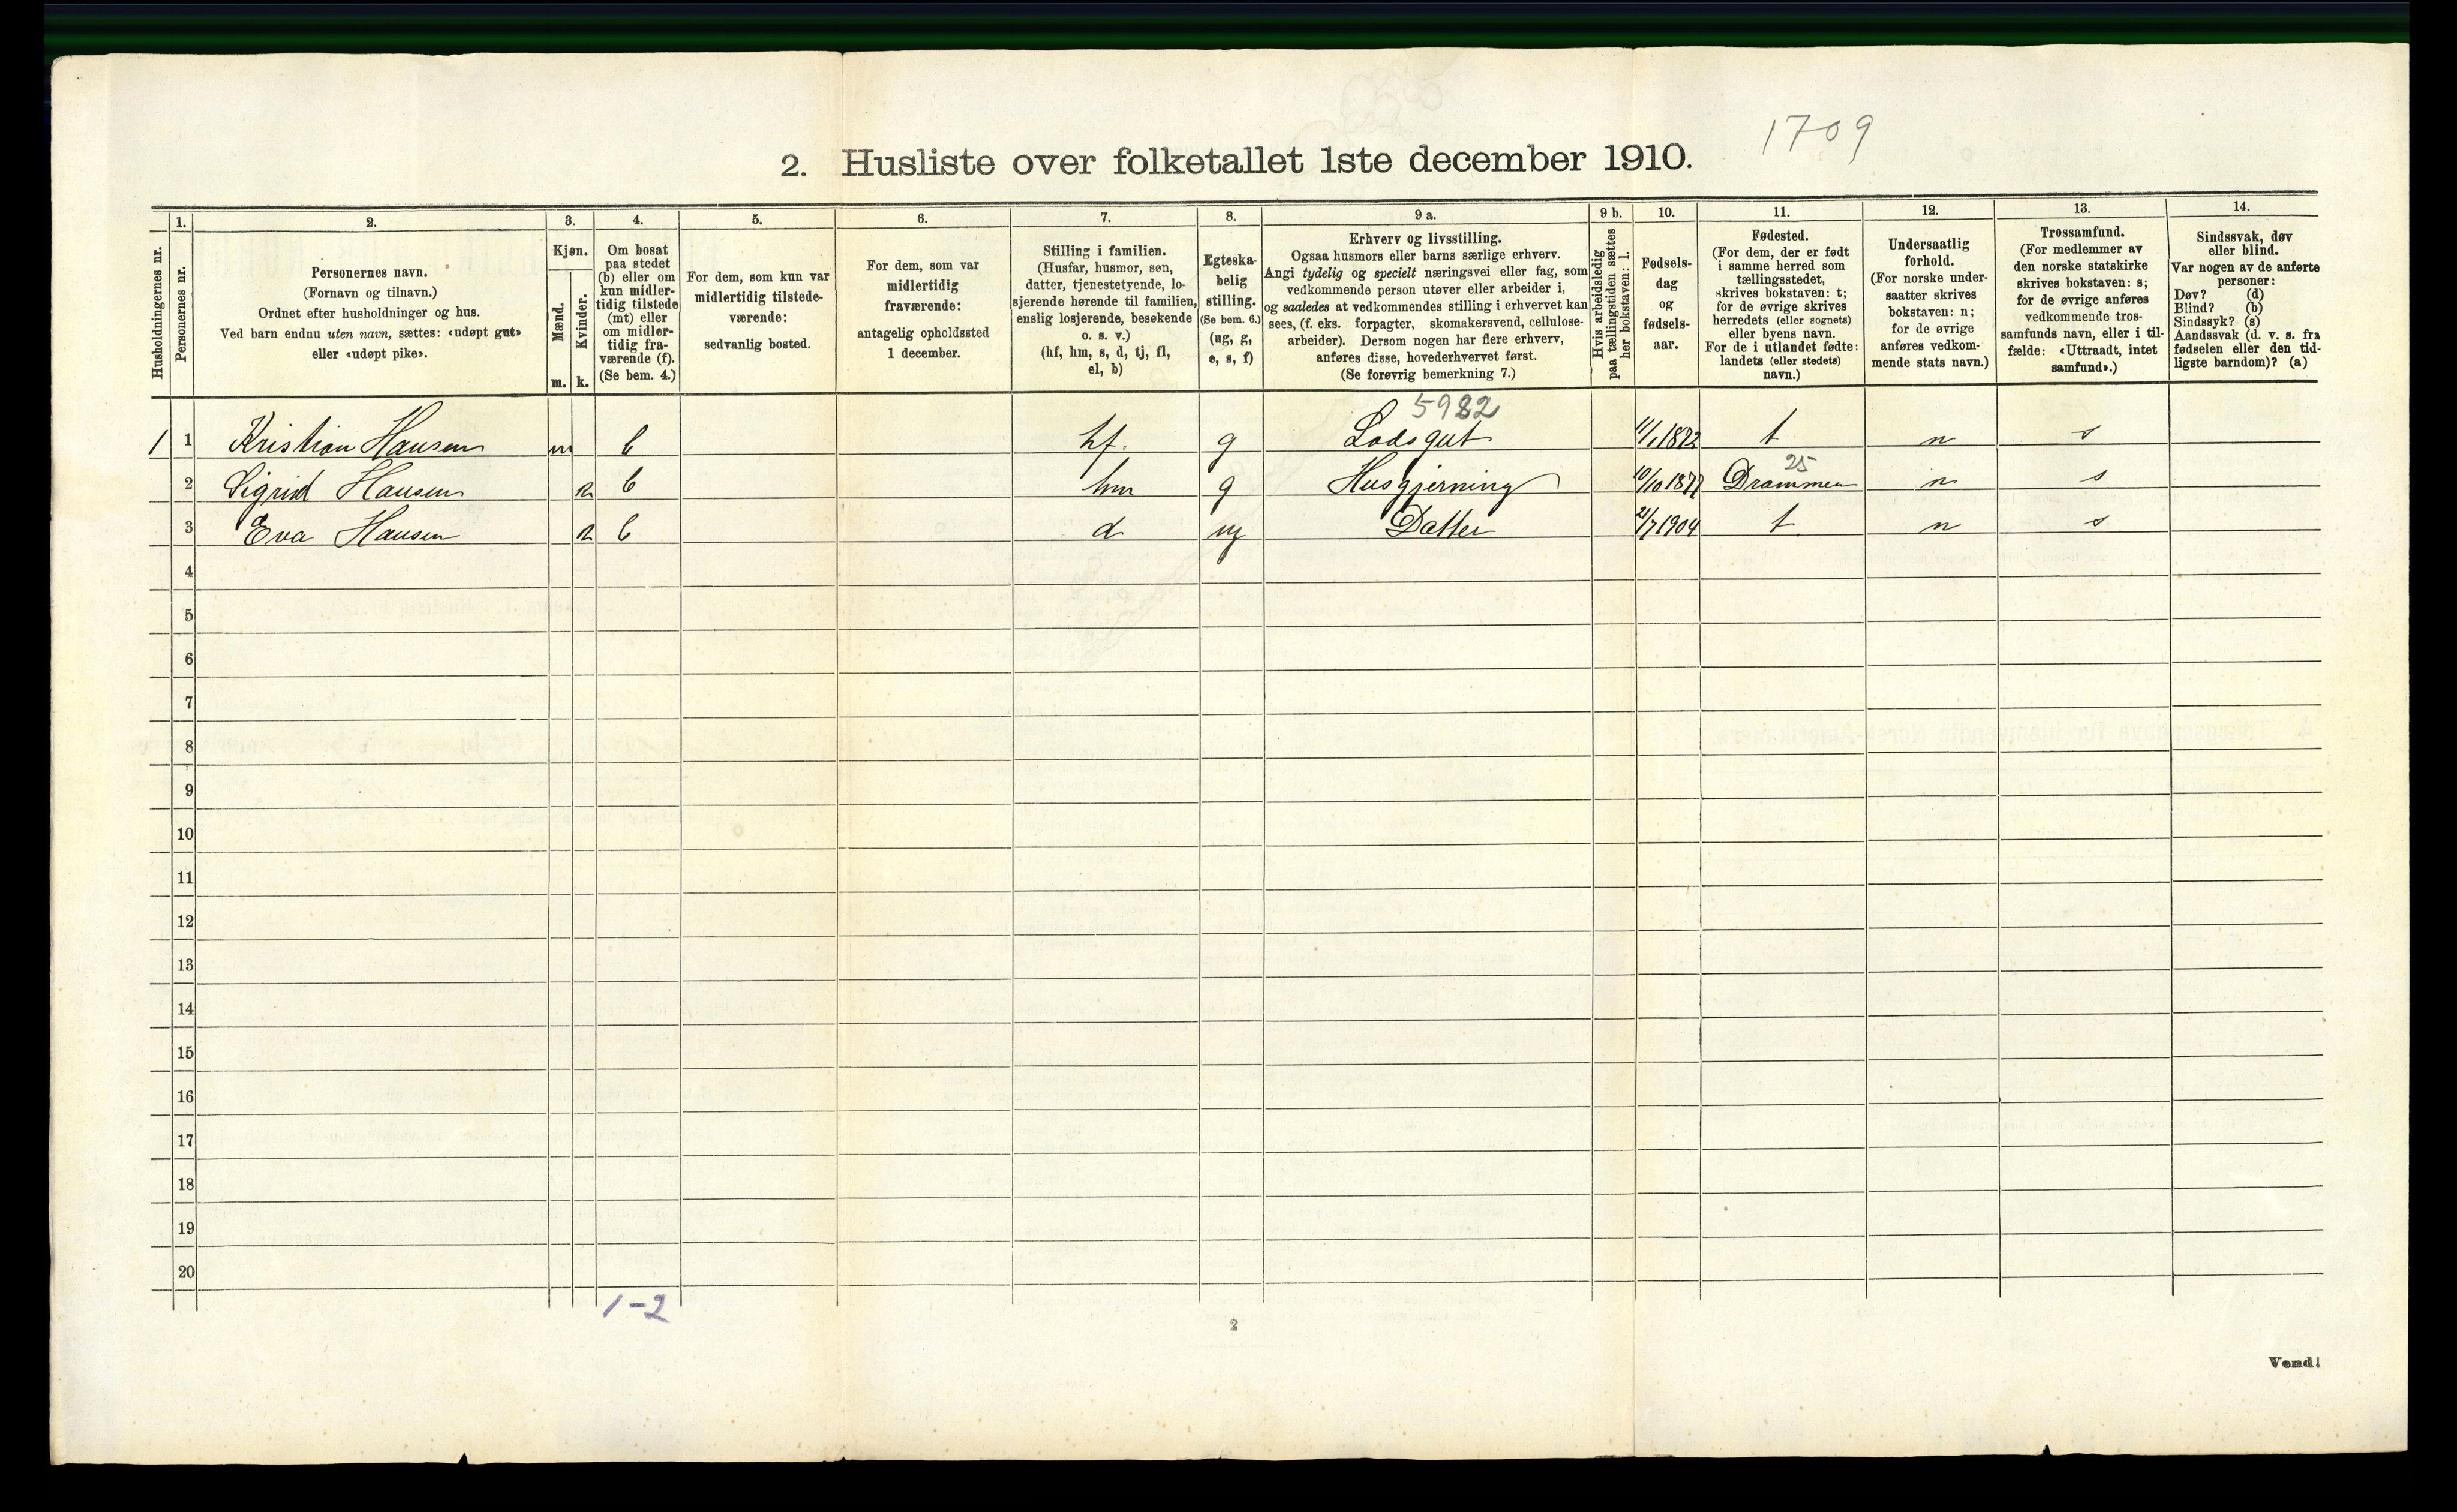 1709
2. Husliste over folketallet 1ste december 1910.
Husholdningernes nr.
1.
Personernes nr.
2.
Personernes navn.
(Fornavn og tilnavn.)
Ordnet efter husholdninger og hus.
Ved barn endnu uten navn, sættes: «udøpt gut»
eller «udøpt pike».
3.
Kjøn.
Mænd.
Kvinder.
m. k.
4.
Om bosat
paa stedet
(b) eller om
kun midler-
tidig tilstede
(mt) eller
om midler-
tidig fra-
værende (f).
(Se bem. 4.)
5.
For dem, som kun var
midlertidig tilstede-
værende:
sedvanlig bosted.
6.
For dem, som var
midlertidig
fraværende:
antagelig opholdssted
1 december.
7.
Stilling i familien.
(Husfar, husmor, søn,
datter, tjenestetyende, lo-
sjerende hørende til familien,
enslig losjerende, besøkende
o. s. v.)
(hf, hm, s, d, tj, fl,
el, b)
8.
Egteska-
belig
stilling.
(Se bem. 6.)
(ug, g,
e, s, f)
9 a.
Erhverv og livsstilling.
Ogsaa husmors eller barns særlige erhverv.
Angi tydelig og specielt næringsvei eller fag, som
vedkommende person utøver eller arbeider i,
og saaledes at vedkommendes stilling i erhvervet kan
sees, (f. eks. forpagter, skomakersvend, cellulose-
arbeider). Dersom nogen har flere erhverv,
anføres disse, hovederhvervet først.
(Se forøvrig bemerkning 7.)
9 b.
Hvis arbeidsledig
paa tællingstiden sættes
her bokstaven: l.
10.
Fødsels-
dag
og
fødsels-
aar.
11.
Fødested.
(For dem, der er født
i samme herred som
tællingsstedet,
skrives bokstaven: t;
for de øvrige skrives
herredets (eller sognets)
eller byens navn.
For de i utlandet fødte:
landets (eller stedets)
navn.)
12.
Undersaatlig
forhold.
(For norske under-
saatter skrives
bokstaven: n;
for de øvrige
anføres vedkom-
mende stats navn.)
13.
Trossamfund.
(For medlemmer av
den norske statskirke
skrives bokstaven: s;
for de øvrige anføres
vedkommende tros-
samfunds navn, eller i til-
fælde: «Uttraadt, intet
samfund».)
14.
Sindssvak, døv
eller blind.
Var nogen av de anførte
personer:
Døv? (d)
Blind? (b)
Sindssyk? (s)
Aandssvak (d. v. s. fra
fødselen eller den tid-
ligste barndom)? (a)
5982
1 1 Kristian Hansen m b hf. g Lodsgut 11/1 1872 t n s
25
2 Sigrid Hansen k b hm g Husgjerning 10/10 1877 Drammen n s
3 Eva Hansen k b d ug Datter 21/7 1904 t. n s
4
5
6
7
8
9
10
11
12
13
14
15
16
17
18
19
20
1-2
2
Vend!